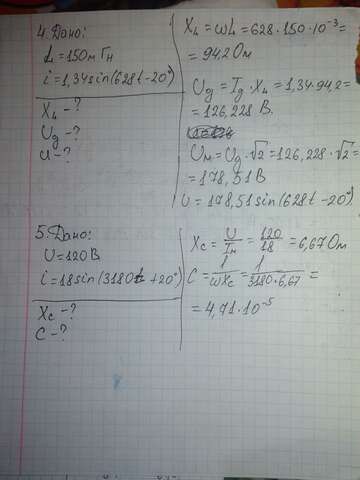 4. Дано:
L=150м Гн
i=1,34sin(628t-20°)
X_L -?
Uд -?
u -?
X_L = ωL = 628·150·10⁻³=
= 94,2 Ом
Uд = Iд · X_L = 1,34·94,2=
= 126,228 В.
Uм = Uд·√2 = 126,228·√2=
= 178,51 В
U = 178,51sin(628t-20°)
5. Дано:
U=120В
i=18sin(3180t+20°)
Xc -?
C -?
Xc = U/Iм = 120/18 = 6,67 Ом
C = 1/ωXc = 1/3180·6,67 =
= 4,71·10⁻⁵